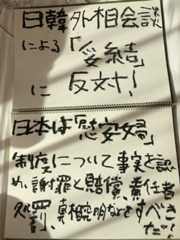 日韓外相会談
による「妥結」
に 反対!
日本は「慰安婦」
制度について事実を認
め、謝罪と賠償、責任者
処罰、真相究明などをすべき
だ!